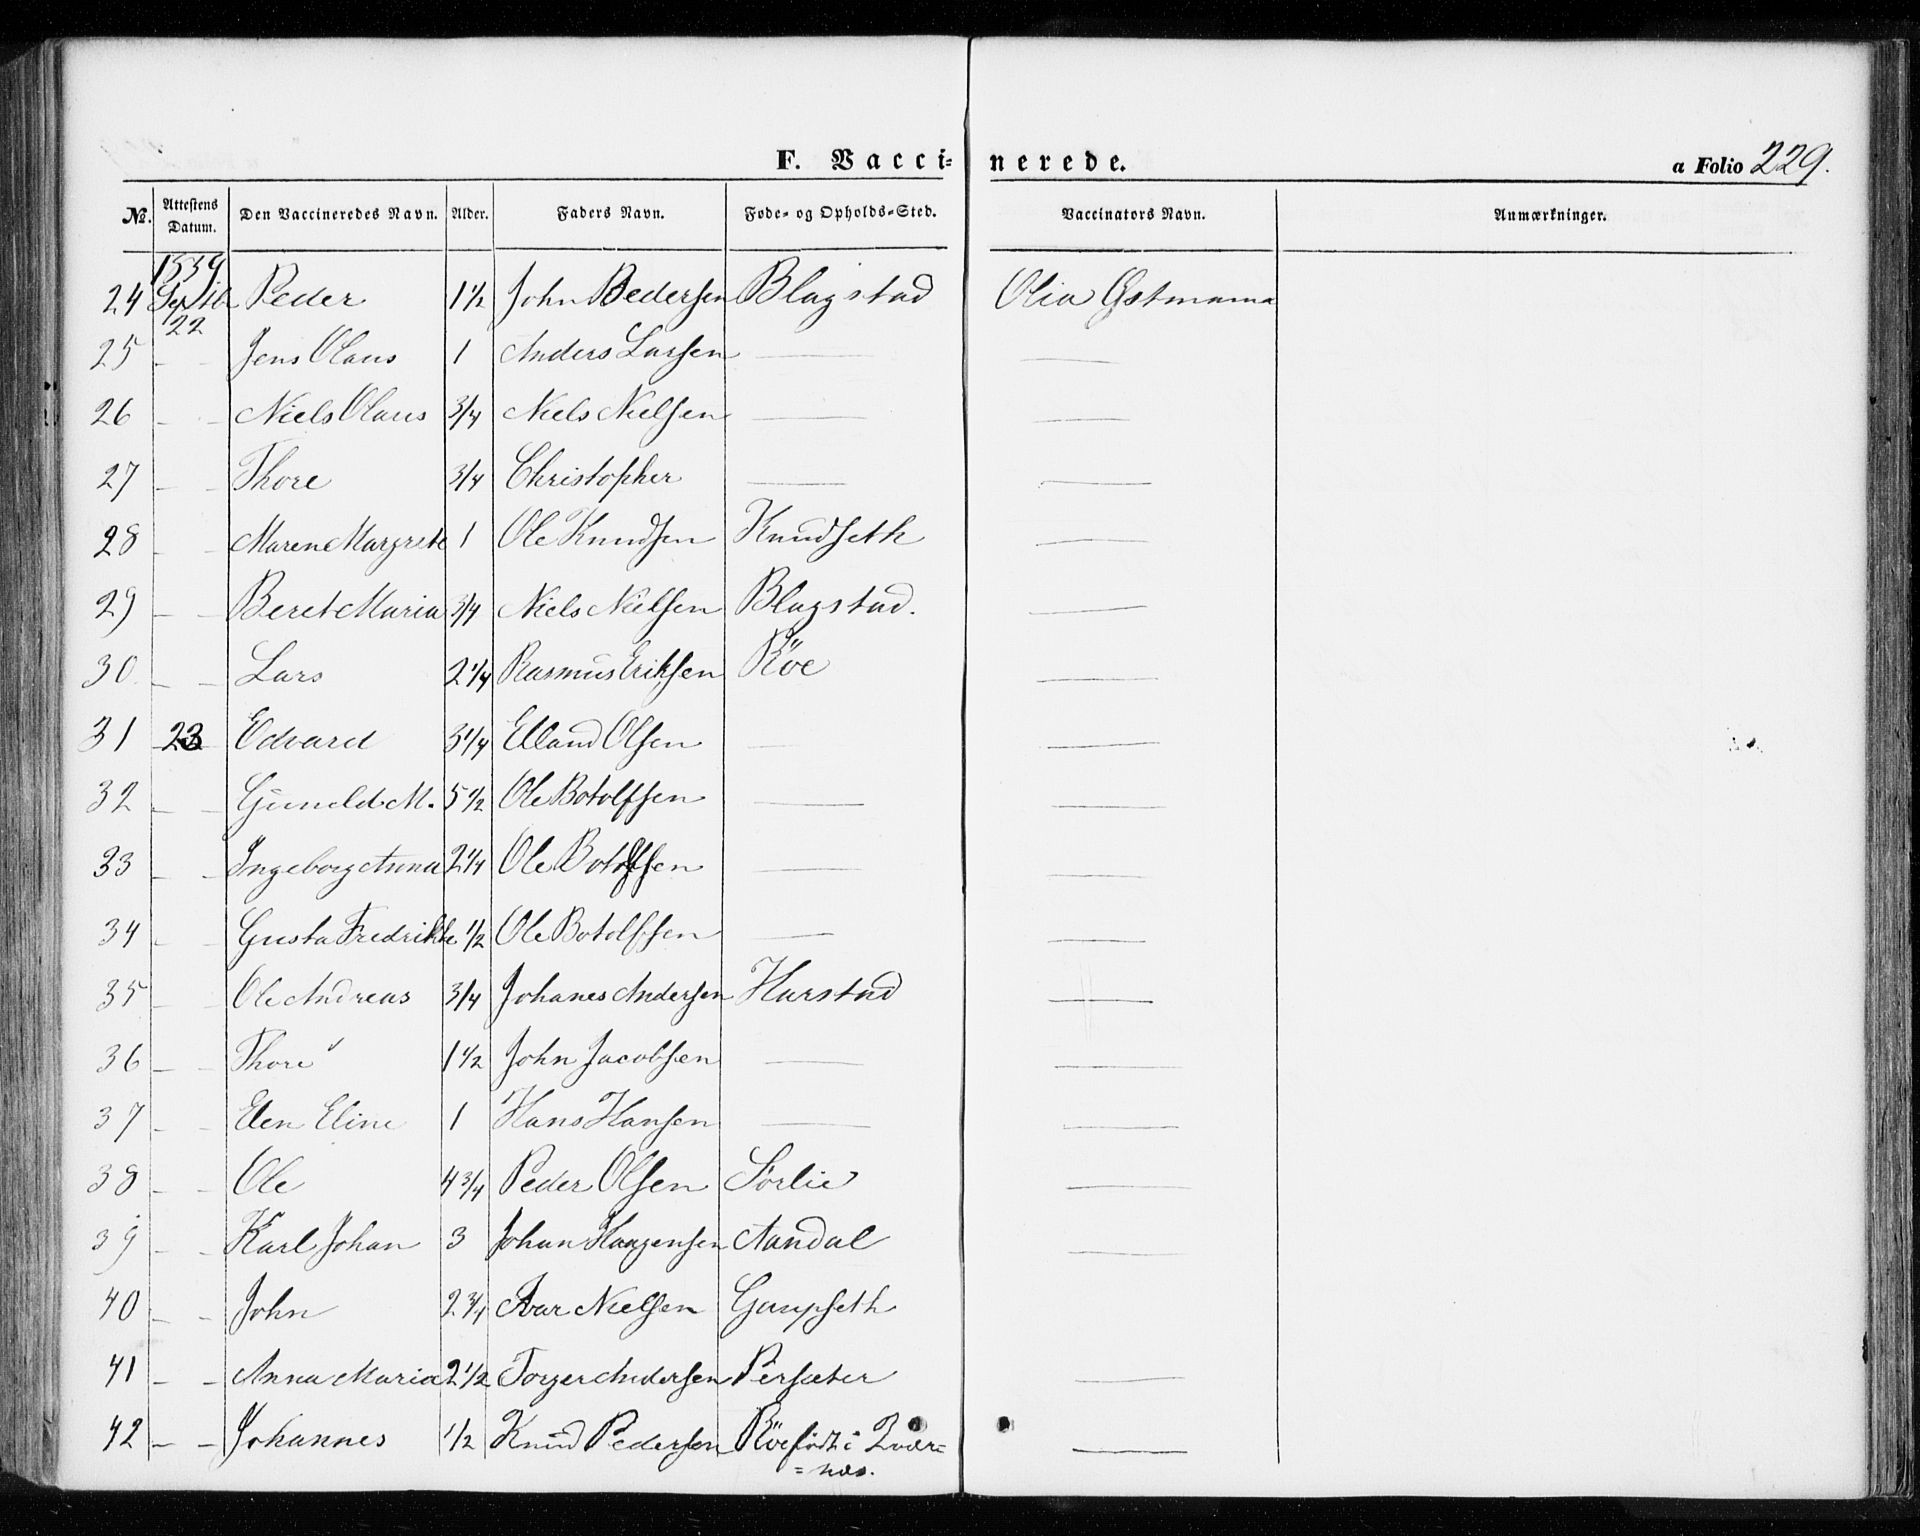 F. Vaccinerede. a Folio 229.
No. Attestens Datum. Den Vaccineredes Navn. Alder. Faders Navn. Føde- og Opholds-Sted. Vaccinators Navn. Anmærkninger.
1839
24 Septb 22 Peder 1 1/2 John Pedersen Blagstad Olia Østmama
25 – – Jens Olaus 1 Anders Larsen — —
26 – – Niels Olaus 3/4 Niels Nielsen — —
27 – – Thore 3/4 Christopher — —
28 – – Maren Margrete 1 Ole Knudsen Knudseth —
29 – – Beret Maria 3/4 Niels Nielsen Blagstad. —
30 – – Lars 2 1/4 Rasmus Eriksen Röe —
31 23 Edvard 3 1/4 Elland Olsen — —
32 – – Guneld M. 5 1/2 Ole Botolfsen — —
33 – – Ingeborg Anna 2 1/4 Ole Botolfsen — —
34 – – Gusta Fredrikke 1/2 Ole Botolfsen — —
35 – – Ole Andreas 3/4 Johanes Andersen Harstad —
36 – – Thore 1 1/2 John Jacobsen — —
37 – – Elen Eline 1 Hans Hansen — —
38 – – Ole 4 3/4 Peder Olsen Sörlie —
39 – – Karl Johan 3 Johan Haagensen Aandal —
40 – – John 2 3/4 Ivar Nielsen Gaupseth
41 – – Anna Maria 2 1/2 Torger Andersen Persæter —
42 – – Johannes 1/2 Knud Pedersen Röe födt i Qvær= —
=næs.